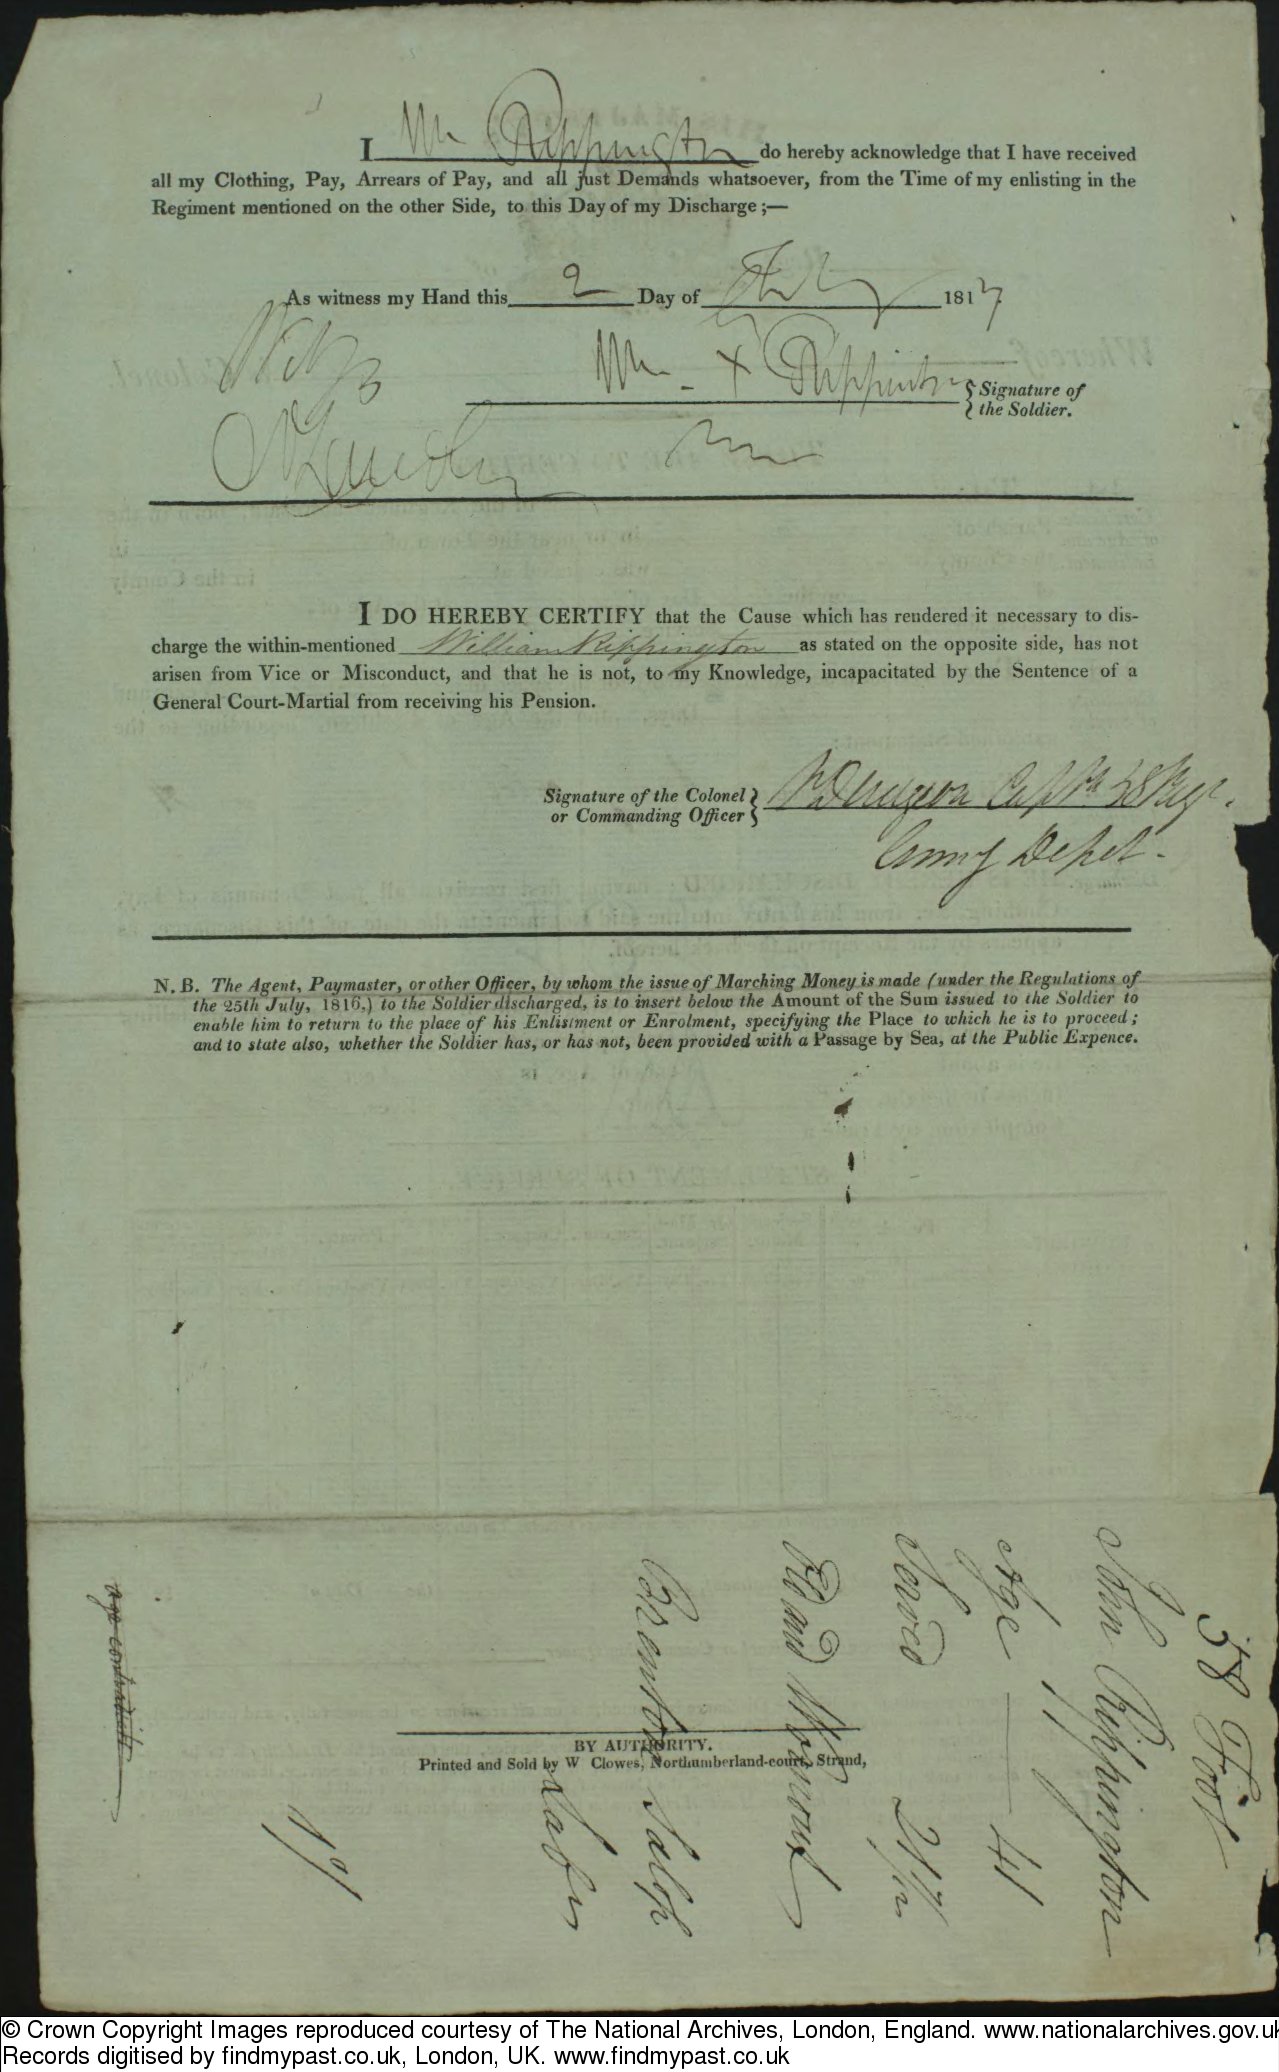 I Wm Rippington do hereby acknowledge that I have received
all my Clothing, Pay, Arrears of Pay, and all just Demands whatsoever, from the Time of my enlisting in the
Regiment mentioned on the other Side, to this Day of my Discharge ;—
As witness my Hand this 2 Day of Feby 1817
Wm X Rippington
Signature of
the Soldier.
I DO HEREBY CERTIFY that the Cause which has rendered it necessary to dis-
charge the within-mentioned William Rippington as stated on the opposite side, has not
arisen from Vice or Misconduct, and that he is not, to my Knowledge, incapacitated by the Sentence of a
General Court-Martial from receiving his Pension.
Signature of the Colonel
or Commanding Officer
Army Depot -
N. B. The Agent, Paymaster, or other Officer, by whom the issue of Marching Money is made (under the Regulations of
the 25th July, 1816,) to the Soldier discharged, is to insert below the Amount of the Sum issued to the Soldier to
enable him to return to the place of his Enlistment or Enrolment, specifying the Place to which he is to proceed ;
and to state also, whether the Soldier has, or has not, been provided with a Passage by Sea, at the Public Expence.
58 Foot
John Rippington
Age — 41
Served 21
Old and Wornout
Salop
Labr
1/
BY AUTHORITY.
Printed and Sold by W Clowes, Northumberland-court, Strand,
© Crown Copyright Images reproduced courtesy of The National Archives, London, England. www.nationalarchives.gov.uk
Records digitised by findmypast.co.uk, London, UK. www.findmypast.co.uk